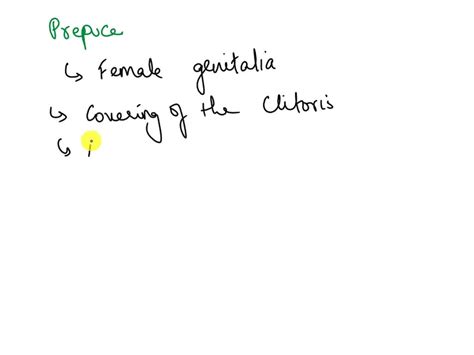 Prepuce
↳ Female genitalia
↳ Covering of the Clitoris
↳